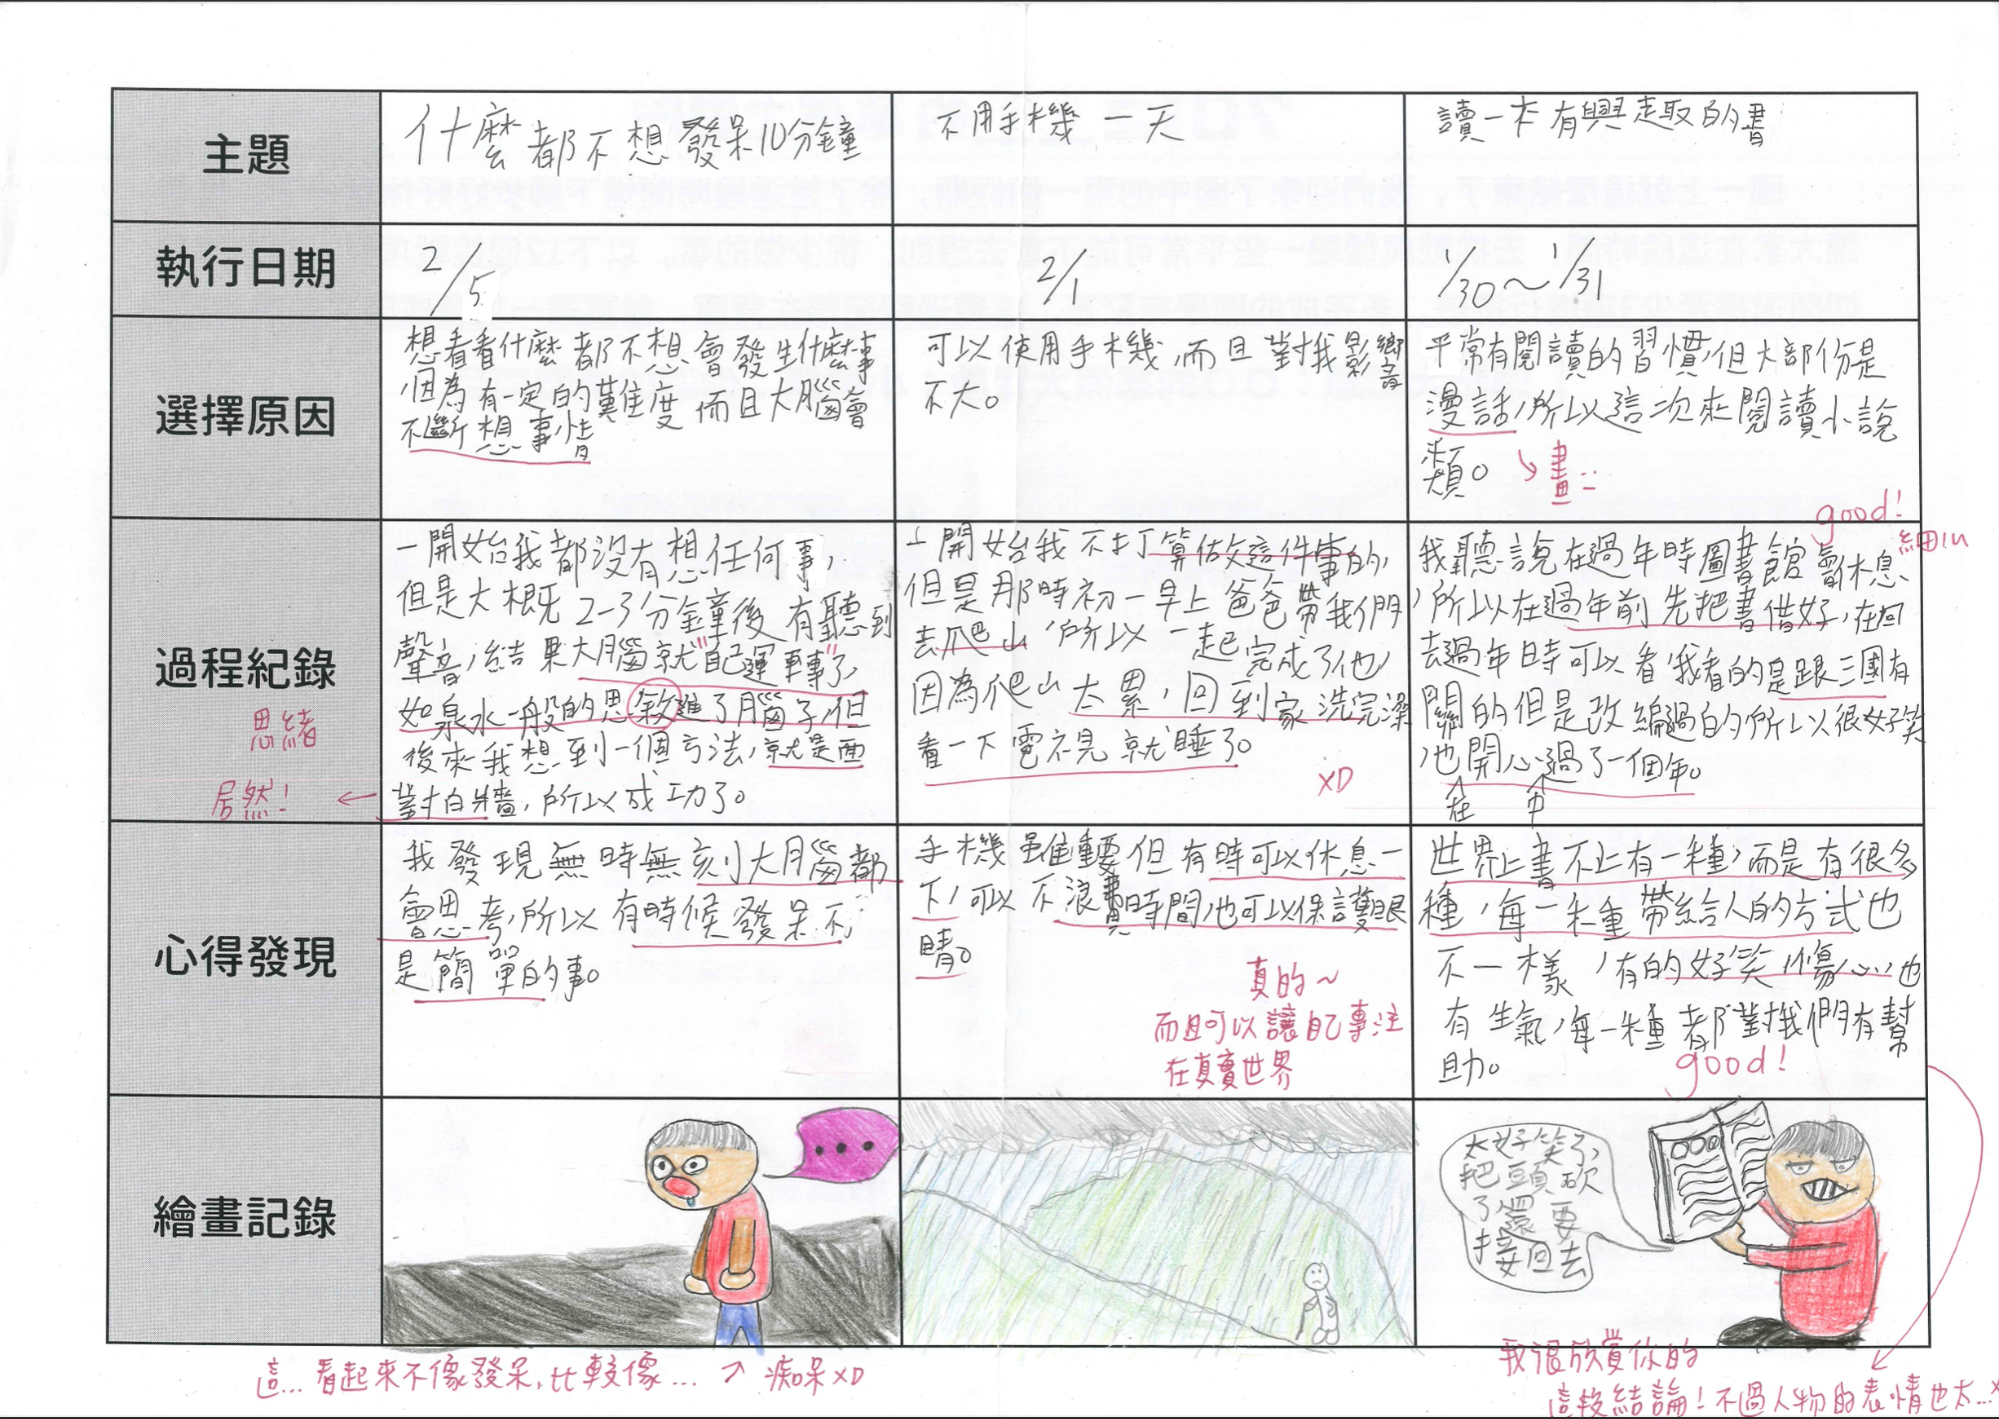 主題
什麼都不想發呆10分鐘
不用手機一天
讀一本有興趣的書
執行日期
2/5
2/1
1/30～1/31
選擇原因
想看看什麼都不想會發生什麼事
,因為有一定的難度而且大腦會
不斷想事情
可以使用手機而且對我影響
不大。
平常有閱讀的習慣,但大部份是
漫話,所以這次來閱讀小說
類。
畫
good!
細心
過程紀錄
思緒
居然!
一開始我都沒有想任何事,
但是大概2-3分鐘後有聽到
聲音,結果大腦就"自己運轉"了,
如泉水一般的思敘進了腦子,但
後來我想到一個方法,就是面
對白牆,所以成功了。
一開始我不打算做這件事的,
但是那時初一早上爸爸帶我們
去爬山,所以一起完成了他,
因為爬山太累,回到家洗完澡
看一下電視就睡了。
XD
我聽說在過年時圖書館會休息
,所以在過年前先把書借好,在回
去過年時可以看,我看的是跟三國有
關的但是改編過的,所以很好笑
,也開心過了一個年。
在
中
心得發現
我發現無時無刻大腦都
會思考,所以有時候發呆不
是簡單的事。
手機雖重要但有時可以休息一
下,可以不浪費時間,也可以保護眼
睛。
真的~
而且可以讓自己專注
在真實世界
世界上書不止有一種,而是有很多
種,每一種帶給人的方式也
不一樣,有的好笑,傷心,也
有生氣,每一種都對我們有幫
助。
good!
繪畫記錄
太好笑了,
把頭砍
了還要
接回去
這...看起來不像發呆,比較像... 痴呆XD
我很欣賞你的
這段結論!不過人物的表情也太...X